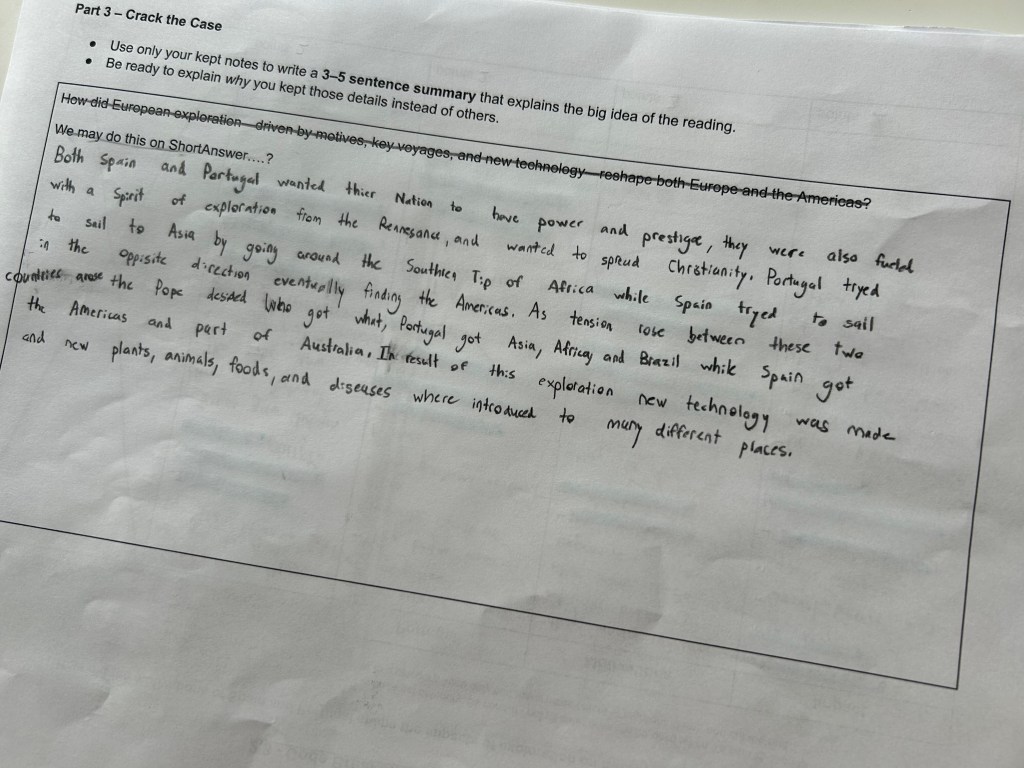 Part 3 – Crack the Case
• Use only your kept notes to write a 3–5 sentence summary that explains the big idea of the reading.
• Be ready to explain why you kept those details instead of others.
How did European exploration—driven by motives, key voyages, and new technology—reshape both Europe and the Americas?
We may do this on ShortAnswer....?
Both Spain and Portugal wanted thier Nation to have power and prestige, they were also fueled
with a Spirit of exploration from the Rennesance, and wanted to spread Chrstianity. Portugal tryed
to sail to Asia by going around the Southren Tip of Africa while Spain tryed to sail
in the oppisite direction eventually finding the Americas. As tension rose between these two
countries the Pope desided who got what, Portugal got Asia, Africa, and Brazil while Spain got
the Americas and part of Australia. In result of this exploration new technology was made
and new plants, animals, foods, and diseases where introduced to many different places.